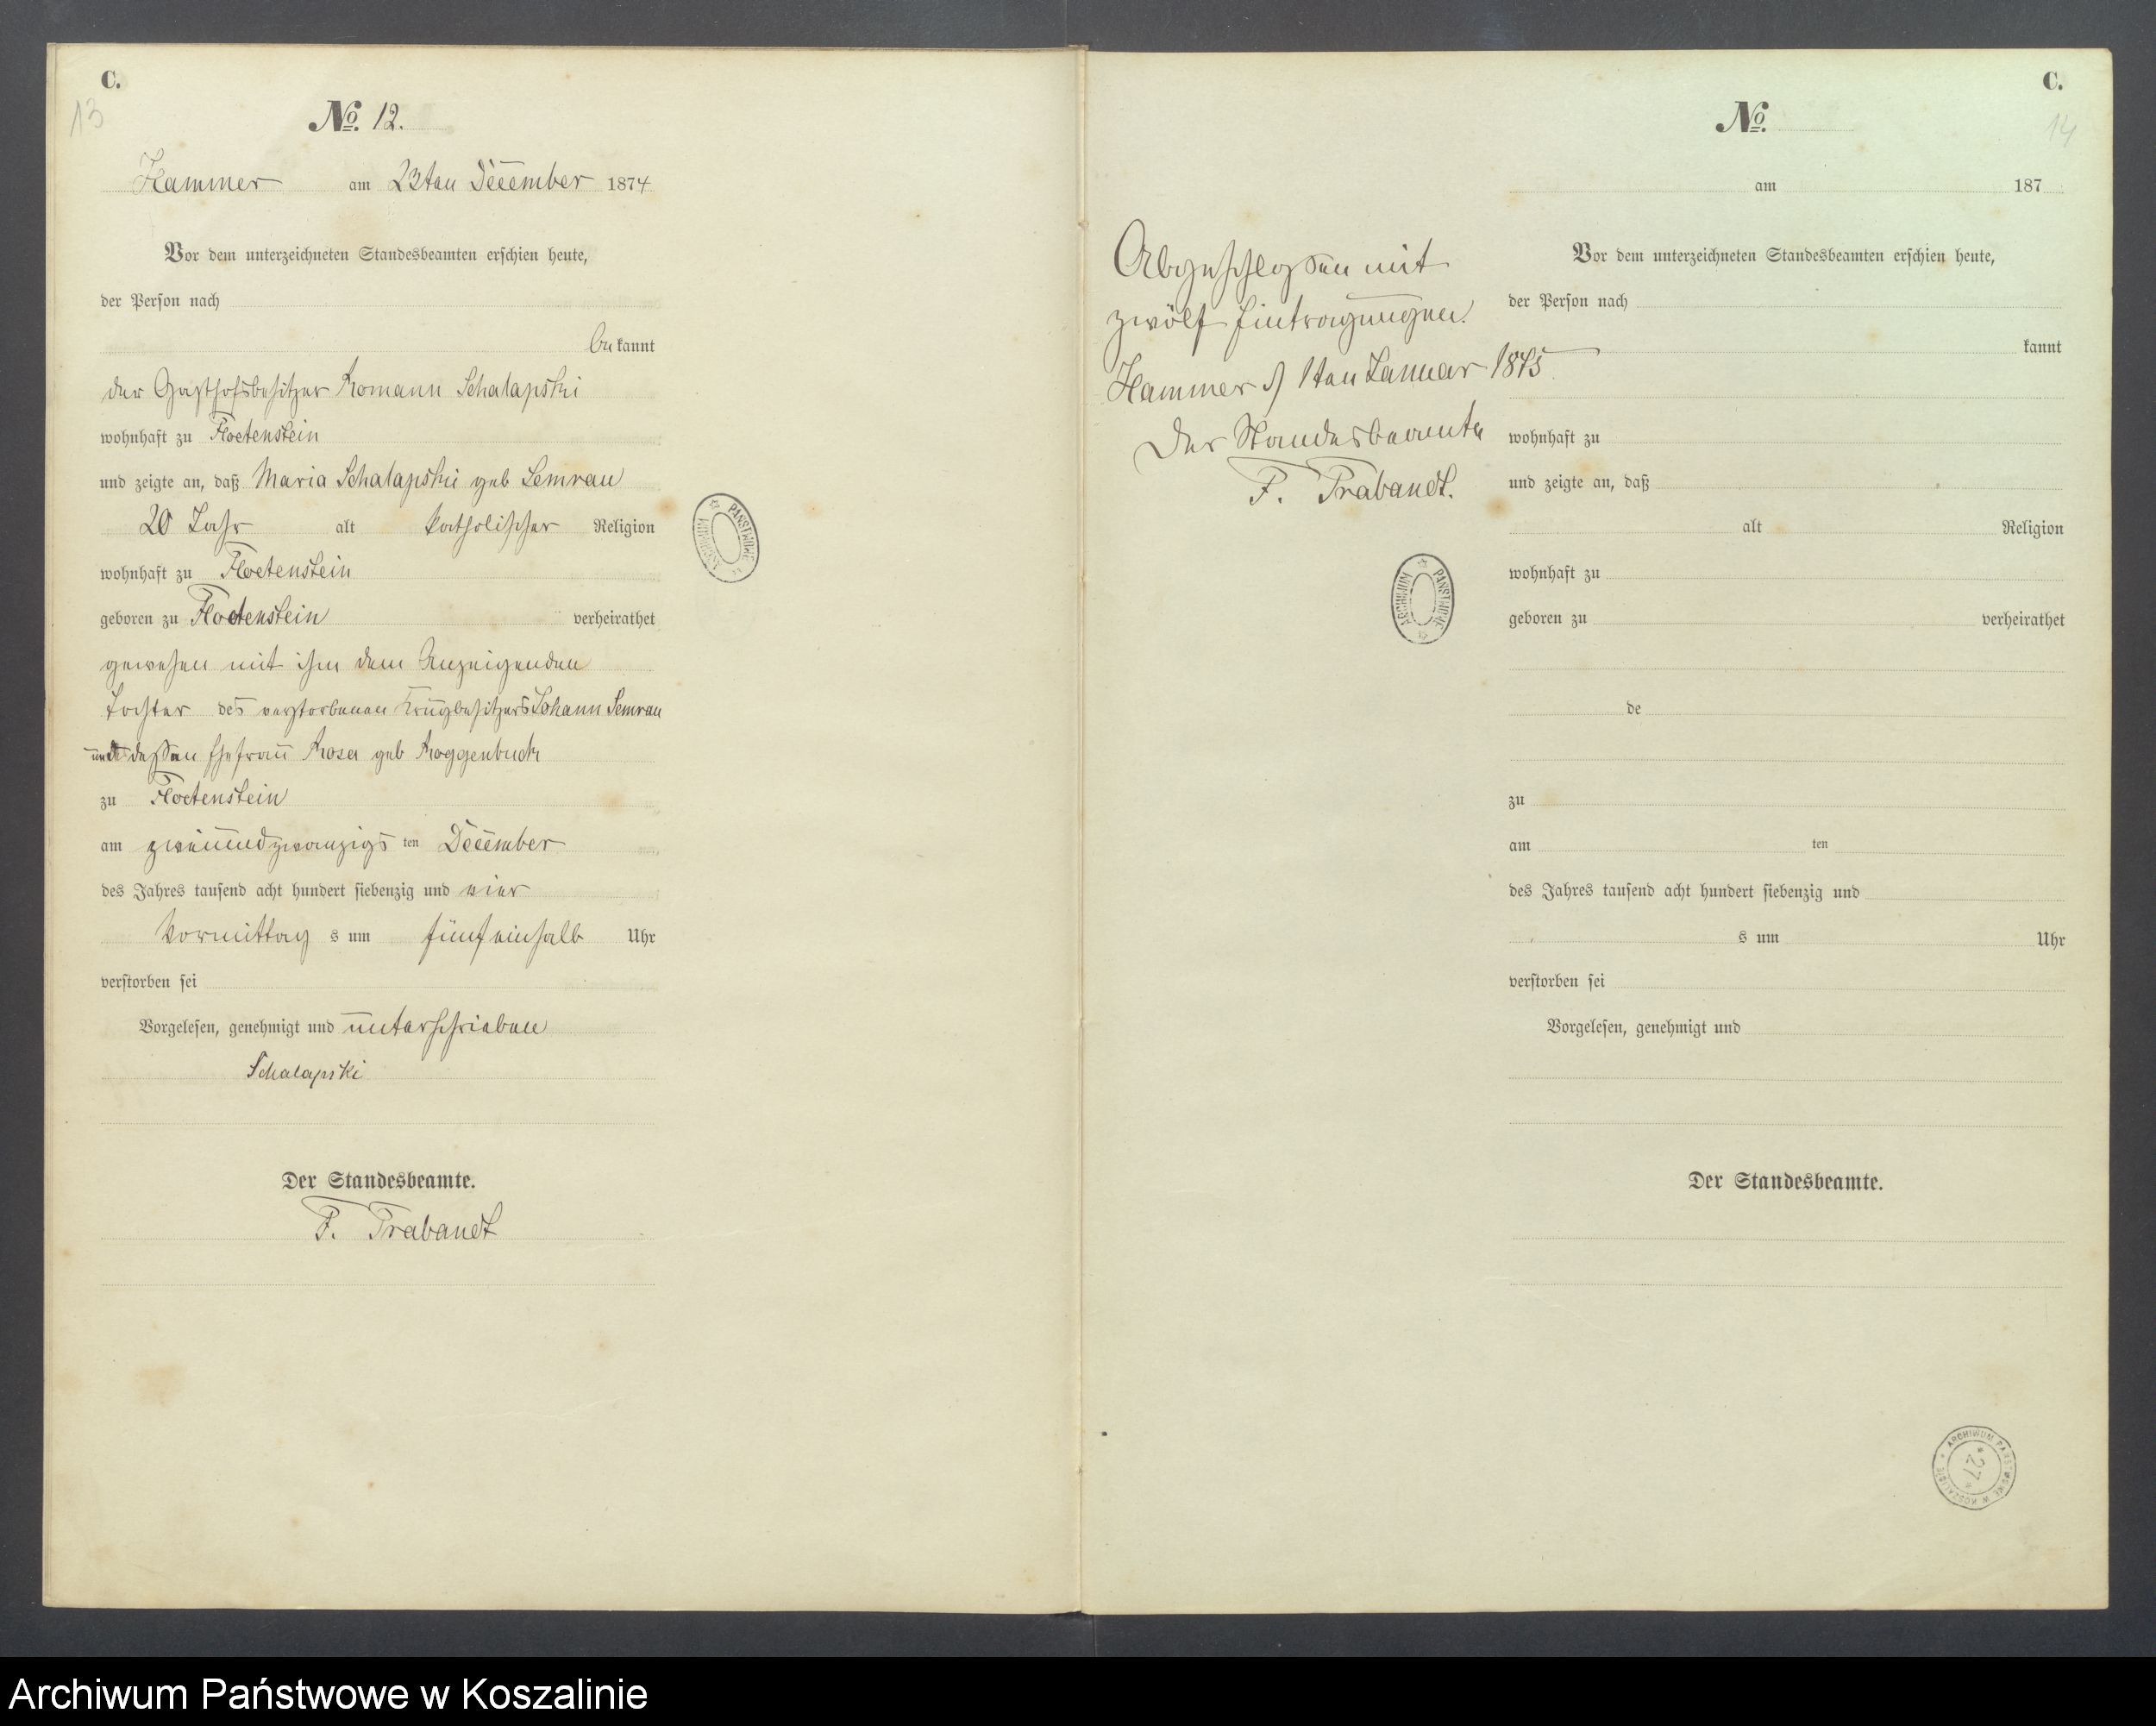 C.
13
No. 12.
Hammer am 23ten December 1874
Vor dem unterzeichneten Standesbeamten erschien heute,
der Person nach
bekannt
der Gasthofsbesitzer Romann Schalapski
wohnhaft zu Floetenstein
und zeigte an, daß Maria Schalapski geb Semrau
20 Jahr alt katholischer Religion
wohnhaft zu Floetenstein
geboren zu Floetenstein verheirathet
gewesen mit ihm dem Anzeigenden
Tochter des verstorbenen Krugbesitzers Johann Semrau
und dessen Ehefrau Rosa geb Roggenbuck
zu Floetenstein
am zweiundzwanzigs ten December
des Jahres tausend acht hundert siebenzig und vier
Vormittag s um fünfeinhalb Uhr
verstorben sei
Vorgelesen, genehmigt und unterschrieben
Schalapski
Der Standesbeamte.
F. Trabandt
ARCHIWUM PAŃSTWOWE
C.
14
No.
am 187
Abgeschlossen mit
zwölf Eintragungen.
Hammer d 1ten Januar 1875
Der Standesbeamte
F. Trabandt.
ARCHIWUM PAŃSTWOWE
Vor dem unterzeichneten Standesbeamten erschien heute,
der Person nach
kannt
wohnhaft zu
und zeigte an, daß
alt Religion
wohnhaft zu
geboren zu verheirathet
de
zu
am ten
des Jahres tausend acht hundert siebenzig und
s um Uhr
verstorben sei
Vorgelesen, genehmigt und
Der Standesbeamte.
ARCHIWUM PAŃSTWOWE W KOSZALINIE
* 27 *
Archiwum Państwowe w Koszalinie